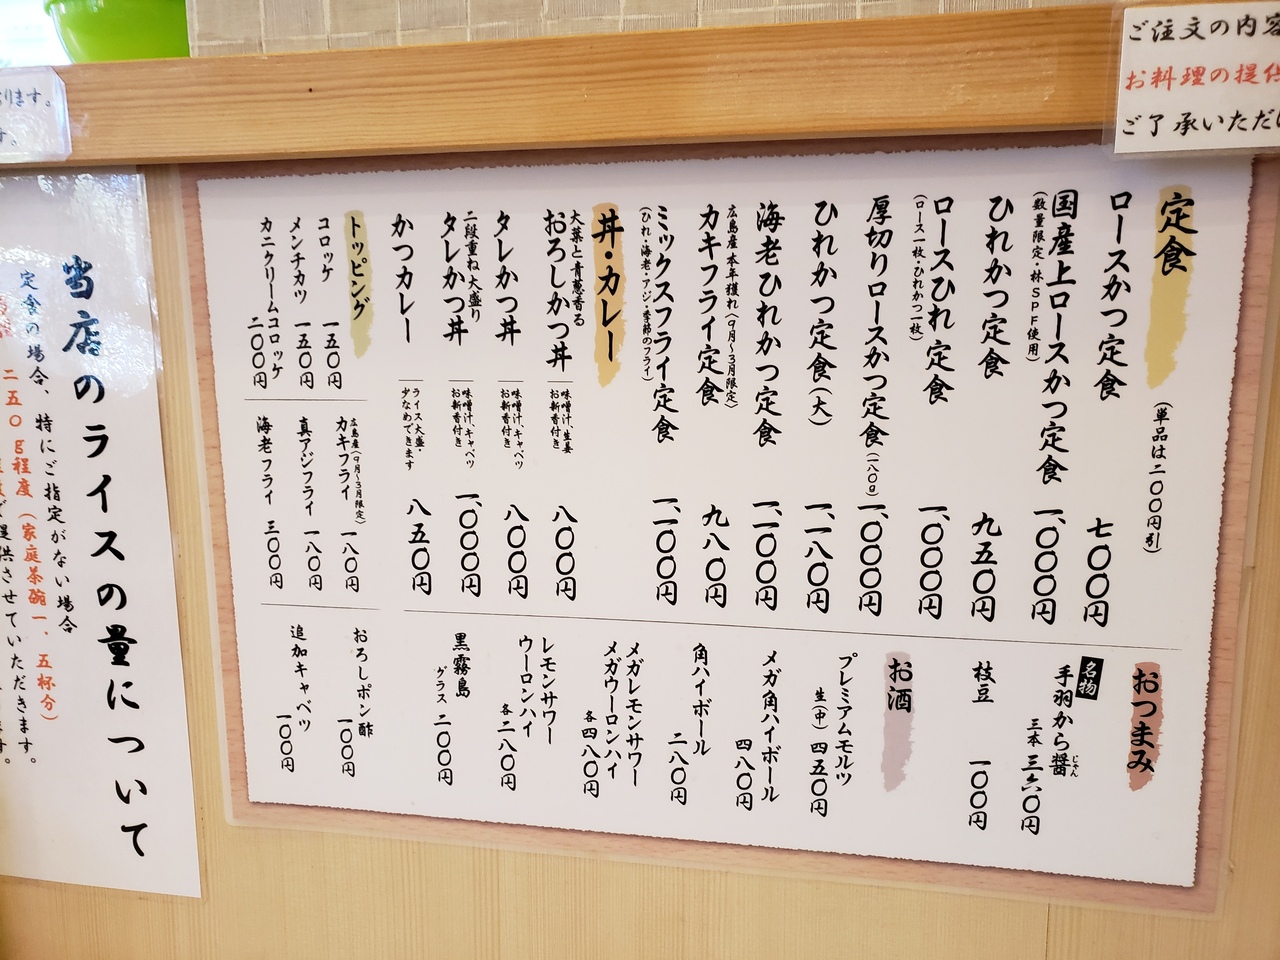 ご注文の内容
お料理の提供
ご了承いただけ
定食
(単品は二〇〇円引)
ロースかつ定食 七〇〇円
国産上ロースかつ定食 一、〇〇〇円
(数量限定・林SPF使用)
ひれかつ定食 九五〇円
ロースひれ定食 一、〇〇〇円
(ロース一枚・ひれかつ一枚)
厚切りロースかつ定食(一八〇g) 一、〇〇〇円
ひれかつ定食(大) 一、一八〇円
海老ひれかつ定食 一、一〇〇円
広島産本年獲れ(9月〜3月限定)
カキフライ定食 九八〇円
ミックスフライ定食 一、一〇〇円
(ひれ・海老・アジ・季節のフライ)
丼・カレー
大葉と青葱香る
おろしかつ丼 味噌汁、生姜 お新香付き 八〇〇円
タレかつ丼 味噌汁、キャベツ お新香付き 八〇〇円
二段重ね大盛り
タレかつ丼 味噌汁、キャベツ お新香付き 一、〇〇〇円
かつカレー ライス大盛・少なめできます 八五〇円
トッピング
コロッケ 一五〇円
メンチカツ 一五〇円
カニクリームコロッケ 二〇〇円
広島産(9月〜3月限定)
カキフライ 一八〇円
真アジフライ 一八〇円
海老フライ 三〇〇円
おろしポン酢 一〇〇円
追加キャベツ 一〇〇円
おつまみ
名物
手羽から醤 じゃん
三本 三六〇円
枝豆 一〇〇円
お酒
プレミアムモルツ
生(中) 四五〇円
メガ角ハイボール
四八〇円
角ハイボール
二八〇円
メガレモンサワー
メガウーロンハイ
各四八〇円
レモンサワー
ウーロンハイ
各二八〇円
黒霧島
グラス 二〇〇円
当店のライスの量について
定食の場合、特にご指定がない場合
二五〇g程度(家庭茶碗一、五杯分)
で提供させていただきます。
ります。
す。